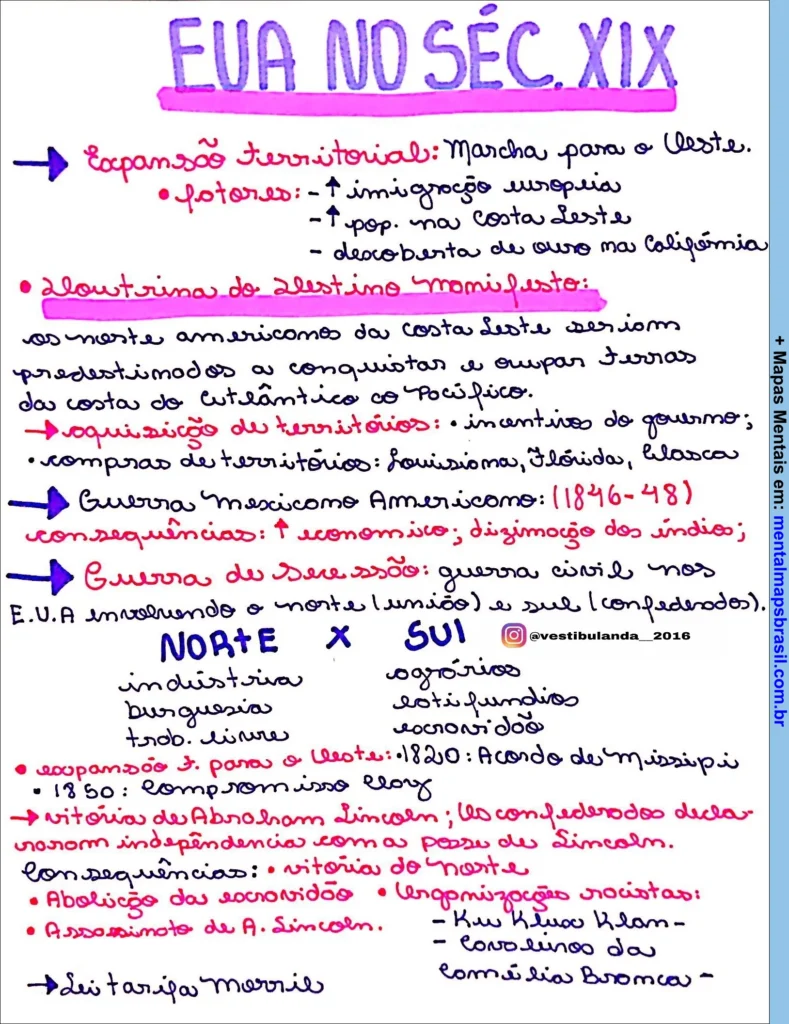 EUA NO SÉC. XIX
→ Expansão territorial: Marcha para o Oeste.
• fatores: - ↑ imigração europeia
- ↑ pop. na costa Leste
- descoberta de ouro na Califórnia
• Doutrina do Destino Manifesto:
os norte americanos da costa Leste seriam
predestinados a conquistar e ocupar terras
da costa do Atlântico ao Pacífico.
→ aquisicção de territórios: • incentivos do governo;
• compras de territórios: Louisiana, Flórida, Alasca
→ Guerra Mexicano Americano: (1846-48)
consequências: ↑ economico; dizimação dos índios;
→ Guerra de Secessão: guerra civil nos
E.U.A envolvendo o norte (união) e sul (confederados).
NORTE X SUl
@vestibulanda__2016
indústria agrários
burguesia latifundios
trab. livre escravidão
• expansão t. para o Oeste: • 1820: Acordo de Missipi
• 1850: Compromisso Clay
→ vitória de Abraham Lincoln; Os confederados decla-
raram indepêndencia com a posse de Lincoln.
Consequências: • vitória do norte
• Abolicção da escravidão • Organizações racistas:
• Assassinato de A. Lincoln. - Ku Klux Klan -
- Cavaleiros da
Camélia Branca -
→ Lei tarifa Morril
+ Mapas Mentais em: mentalmapsbrasil.com.br